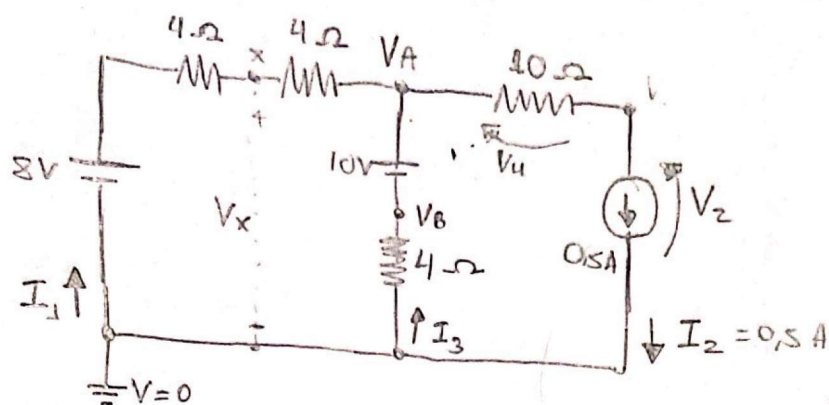 4Ω
x
4Ω
VA
10Ω
+
8V
10V
V4
Vx
VB
V2
4Ω
0,5A
I1
I3
I2 = 0,5 A
-
V=0